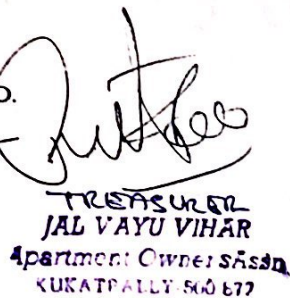 TREASURER
JAL VAYU VIHAR
Apartment Owners Assan
KUKATPALLY-500 677